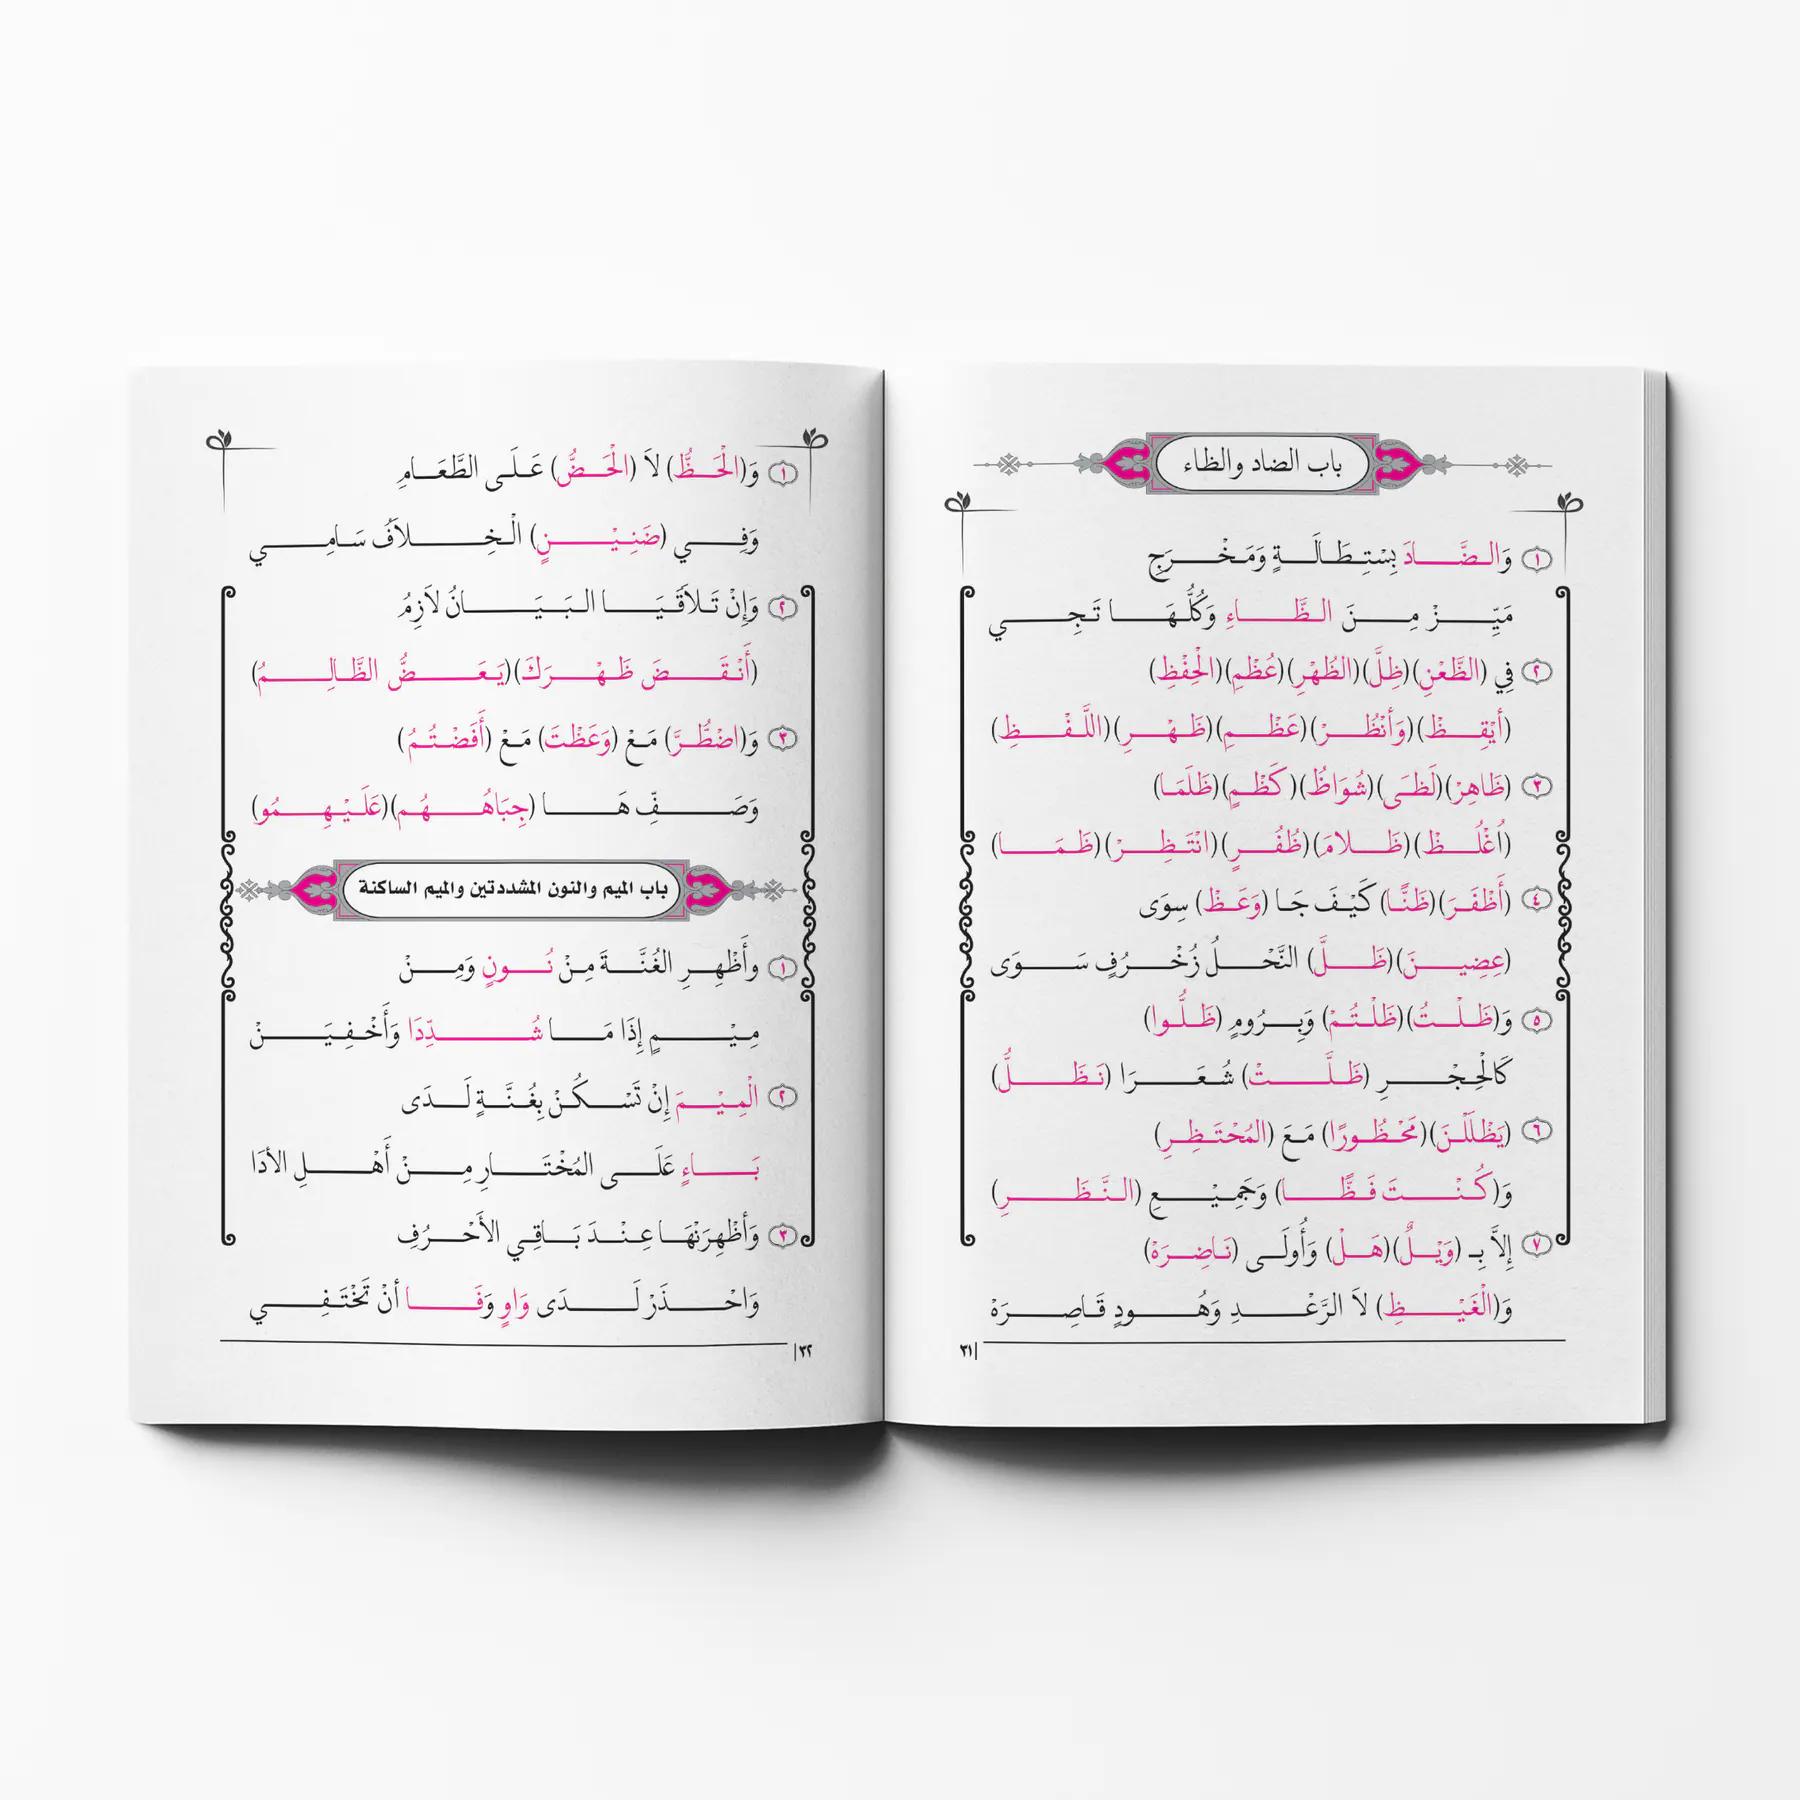 باب الضاد والظاء
١ وَالضَّادَ بِسْتِطَالَةٍ وَمَخْرَجِ
مَيِّزْ مِنَ الظَّاءِ وَكُلُّهَا تَجِي
٢ فِي (الظَّعْنِ)(ظِلَّ)(الظُهْرِ)(عُظْمِ)(الْحِفْظِ)
(أَيْقِظْ)(وَأَنْظُرْ)(عَظْمِ)(ظَهْرِ)(اللَّفْظِ)
٣ (ظَاهِرْ)(لَظَى)(شُوَاظُ)(كَظْمٍ)(ظَلَمَا)
(اُغْلُظْ)(ظَلامَ)(ظُفُرٍ)(انْتَظِرْ)(ظَمَا)
٤ (أَظْفَرَ)(ظَنًّا) كَيْفَ جَا (وَعَظْ) سِوَى
(عِضِينَ)(ظَلَّ) النَّحْلُ زُخْرُفٍ سَوَى
٥ وَ(ظَلْتُ)(ظَلْتُمْ) وَبِرُومٍ (ظَلُّوا)
كَالْحِجْرِ (ظَلَّتْ) شُعَرَا (نَظَلُّ)
٦ (يَظْلَلْنَ)(مَحْظُورًا) مَعَ (المُحْتَظِرِ)
وَ(كُنْتَ فَظًّا) وَجَمِيْعِ (النَّظَرِ)
٧ إِلاَّ بِـ (وَيْلٌ)(هَلْ) وَأُولَى (نَاضِرَهْ)
وَ(الْغَيْظِ) لاَ الرَّعْدِ وَهُودٍ قَاصِرَهْ
٣١
١ وَ(الْحَظُّ) لاَ (الْحَضُّ) عَلَى الطَّعَامِ
وَفِي (ضَنِيْنٍ) الْخِلاَفُ سَامِي
٢ وَإِنْ تَلاَقَيَا البَيَانُ لاَزِمُ
(أَنْقَضَ ظَهْرَكَ)(يَعَضُّ الظَّالِمُ)
٣ وَ(اضْطُّرَّ) مَعْ (وَعَظْتَ) مَعْ (أَفَضْتُمُ)
وَصَفِّ هَا (جِبَاهُهُم)(عَلَيْهِمُو)
باب الميم والنون المشددتين والميم الساكنة
١ وأَظْهِرِ الغُنَّةَ مِنْ نُونٍ وَمِنْ
مِيْمٍ إِذَا مَا شُدِّدَا وَأَخْفِيَنْ
٢ الْمِيْمَ إِنْ تَسْكُنْ بِغُنَّةٍ لَدَى
بَاءٍ عَلَى المُخْتَارِ مِنْ أَهْلِ الأدَا
٣ وَأظْهِرَنْهَا عِنْدَ بَاقِي الأَحْرُفِ
وَاحْذَرْ لَدَى وَاوٍ وَفَا أنْ تَخْتَفِي
٣٢